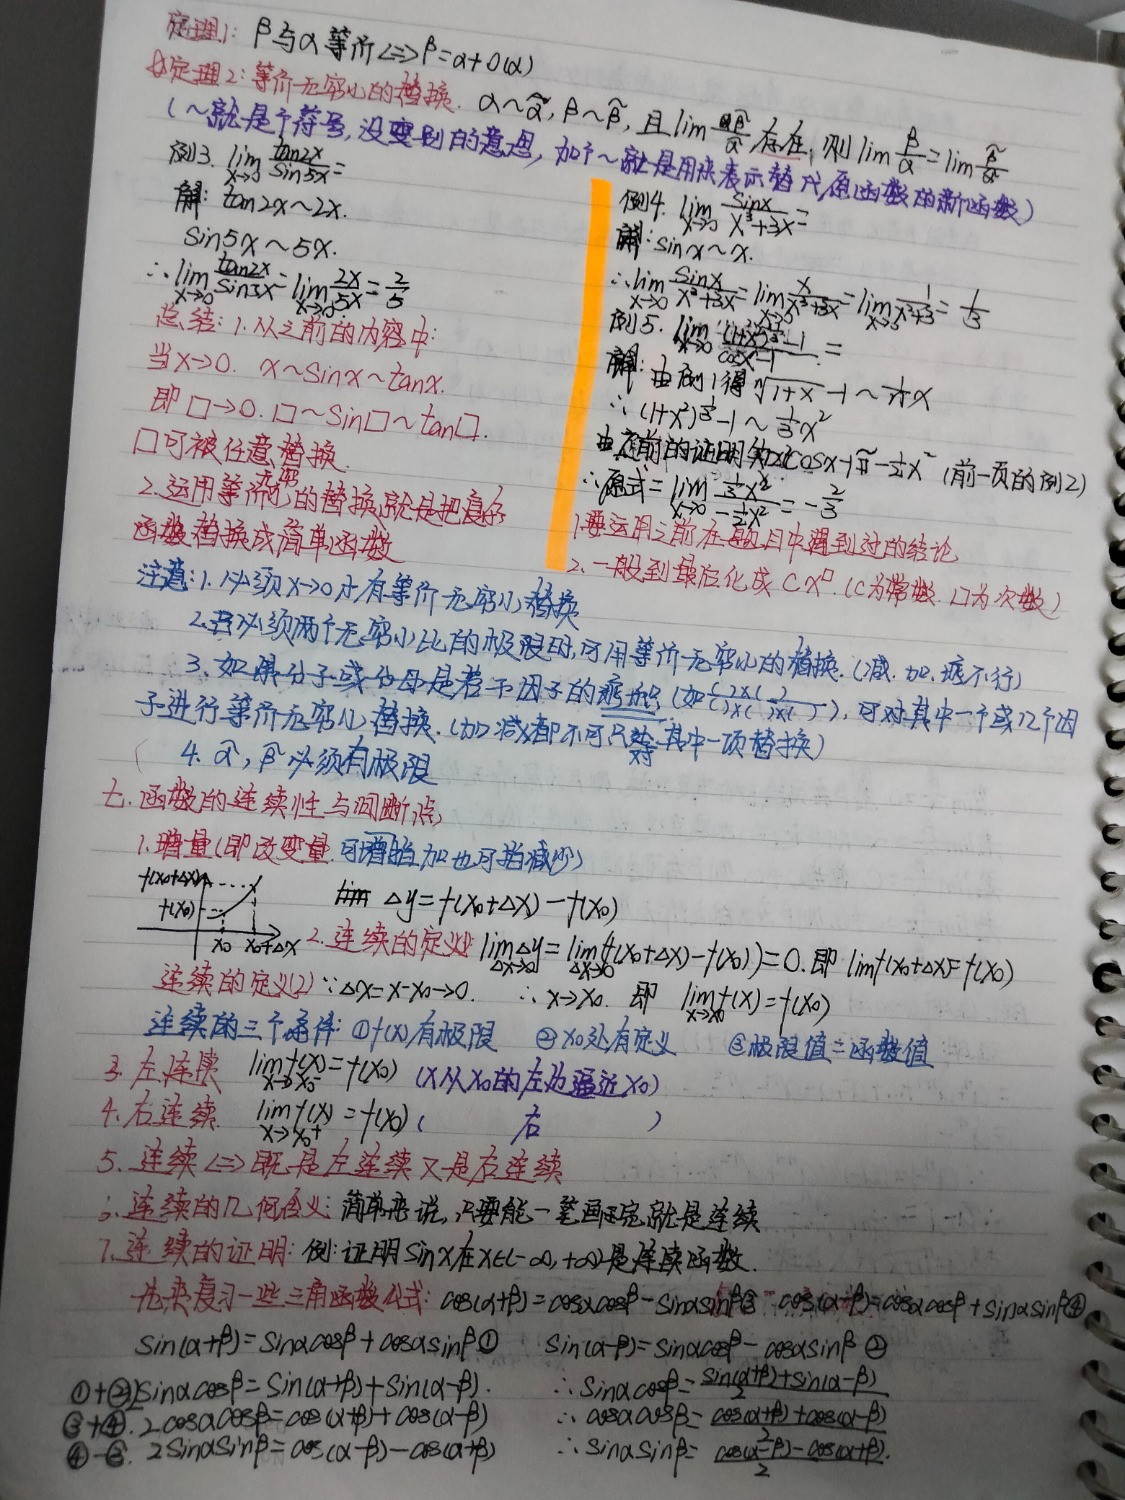 定理1: β与α等价<=>β=α+o(α)
定理2:等价无穷小的替换. α~α̃, β~β̃, 且lim β̃/α̃ 存在, 则lim β/α = lim β̃/α̃
(~就是个符号,没变到的意思,加个~就是用来表示替代原函数的新函数)
例3. lim x→0 tan2x/sin5x =
解: tan2x~2x.
sin5x~5x.
∴lim x→0 tan2x/sin5x = lim x→0 2x/5x = 2/5
总结: 1.从之前的内容中:
当x→0. x~sinx~tanx.
即□→0. □~sin□~tan□.
□可被任意替换.
2.运用等价无穷小的替换,就是把复杂
函数替换成简单函数
例4. lim x→0 sinx/x³+3x =
解: sinx~x.
∴lim x→0 sinx/x³+3x = lim x→0 x/x³+3x = lim x→0 1/x²+3 = 1/3
例5. lim x→0 (1+x²)^⅓-1/cosx-1 =
解: 由例1得 ⁿ√1+x -1 ~ 1/n x
∴(1+x²)^⅓-1 ~ ⅓x²
由之前的证明知 cosx-1~-½x² (前一页的例2)
∴原式= lim x→0 ⅓x²/-½x² = -2/3
1.要运用之前在题目中遇到过的结论
2.一般到最后化成 cx^□. (c为常数. □为次数)
注意: 1.必须x→0才有等价无穷小替换
2.必须两个无穷小比的极限时,可用等价无穷小的替换. (减.加.乘不行)
3.如果分子或分母是若干因子的乘积 (如()x()/()x()), 可对其中一个或几个因
子进行等价无穷小替换. (加减都不可只对其中一项替换)
4. α̃, β̃必须有极限
七.函数的连续性与间断点
1.增量(即改变量.可指增加也可指减少)
f(x₀+Δx)
f(x₀)
x₀ x₀+Δx
Δy=f(x₀+Δx)-f(x₀)
2.连续的定义(1) lim Δx→0 Δy = lim Δx→0 (f(x₀+Δx)-f(x₀))=0. 即 lim f(x₀+Δx)=f(x₀)
连续的定义(2) ∵Δx=x-x₀→0. ∴x→x₀. 即 lim x→x₀ f(x)=f(x₀)
连续的三个条件: ①f(x)有极限 ②x₀处有定义 ③极限值=函数值
3.左连续 lim x→x₀⁻ f(x)=f(x₀) (x从x₀的左边逼近x₀)
4.右连续. lim x→x₀⁺ f(x)=f(x₀) ( 右 )
5.连续<=>既是左连续又是右连续
6.连续的几何含义: 简单来说,只要能一笔画完就是连续
7.连续的证明: 例:证明sinx在x∈(-∞,+∞)是连续函数.
先来复习一些三角函数公式: cos(α+β)=cosαcosβ-sinαsinβ③ cos(α-β)=cosαcosβ+sinαsinβ④
sin(α+β)=sinαcosβ+cosαsinβ① sin(α-β)=sinαcosβ-cosαsinβ②
①+②.2sinαcosβ=sin(α+β)+sin(α-β). ∴sinαcosβ= sin(α+β)+sin(α-β)/2
③+④.2cosαcosβ=cos(α+β)+cos(α-β) ∴cosαcosβ= cos(α+β)+cos(α-β)/2
④-③. 2sinαsinβ=cos(α-β)-cos(α+β) ∴sinαsinβ= cos(α-β)-cos(α+β)/2.